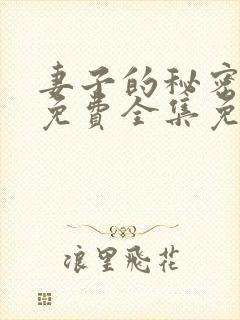 妻子的秘密
免費全集免
浪里飛花